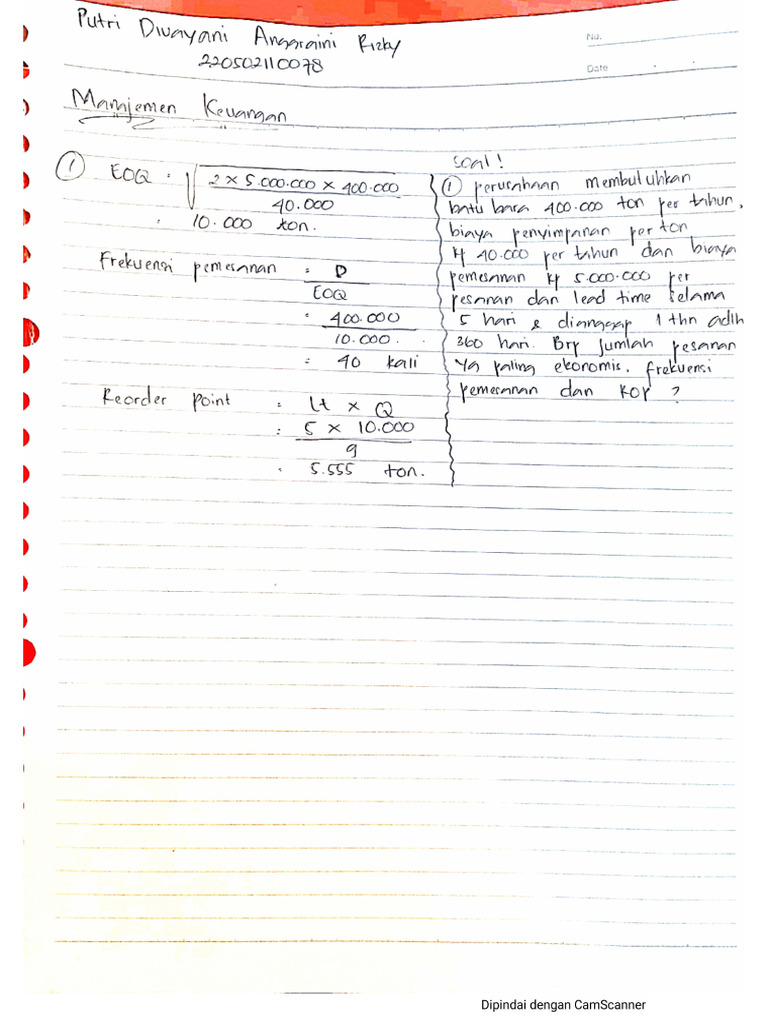 Putri Diwayani Anggraini Rizky
220502110078
No.
Date
Manajemen Keuangan
① EOQ = √ 2 × 5.000.000 × 400.000
40.000
= 10.000 ton.
Frekuensi pemesanan = D
EOQ
= 400.000
10.000
= 40 kali
Reorder Point = Lt × Q
= 5 × 10.000
9
= 5.555 ton.
Soal!
① perusahaan membutuhkan
batu bara 400.000 ton per tahun,
biaya penyimpanan per ton
Rp 40.000 per tahun dan biaya
pemesanan Rp 5.000.000 per
pesanan dan lead time selama
5 hari & dianggap 1 thn adlh
360 hari. Brp jumlah pesanan
yg paling ekonomis, frekuensi
pemesanan dan ROP ?
Dipindai dengan CamScanner